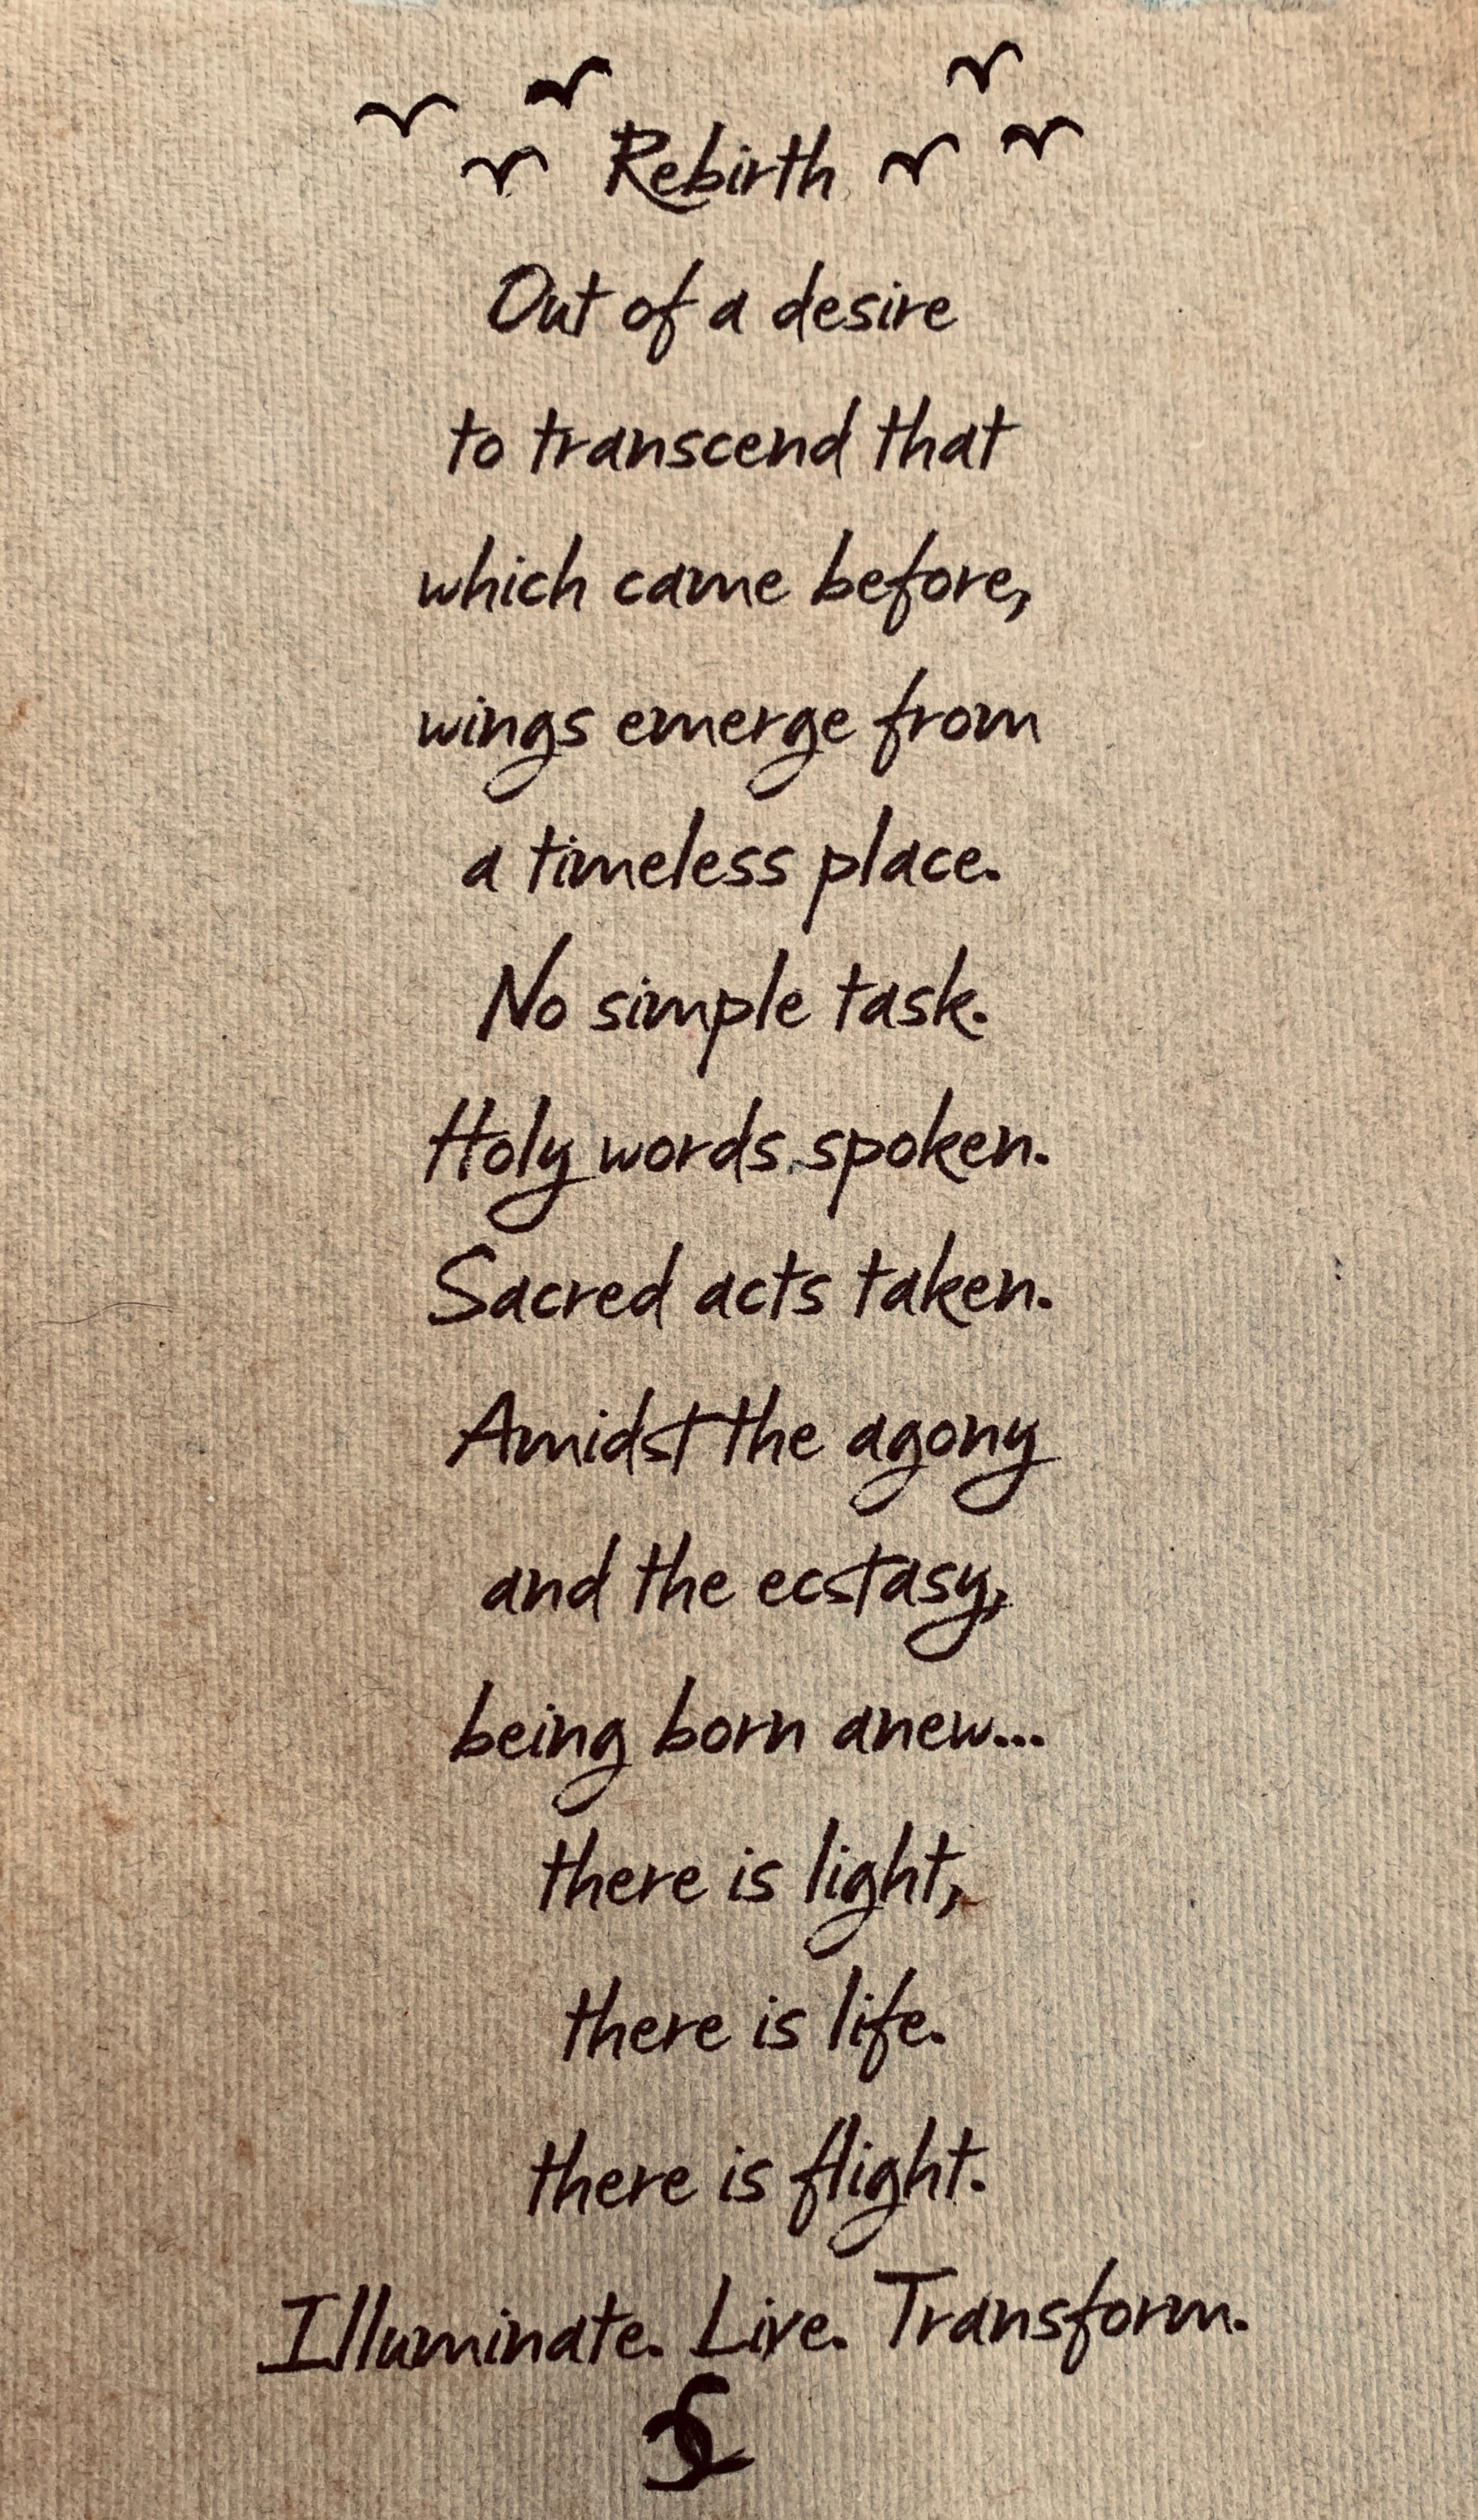 Rebirth
Out of a desire
to transcend that
which came before,
wings emerge from
a timeless place.
No simple task.
Holy words spoken.
Sacred acts taken.
Amidst the agony
and the ecstasy,
being born anew...
there is light,
there is life.
there is flight.
Illuminate. Live. Transform.